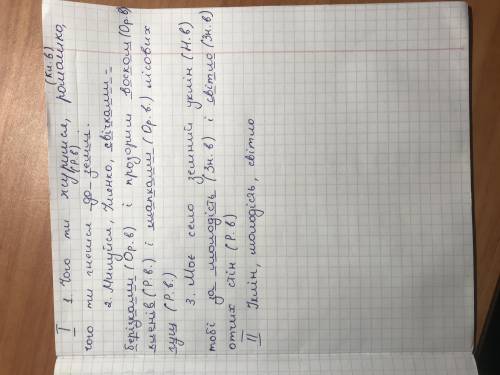 (Кл.в)
I 1. Чого ти журишся, ромашко,
(Р.в)
чого ти гнешся до землі.
2. Милуйся, свічками -
берізками (Ор.в) і прозорим воском (Ор.в)
кленів (Р.в.) і шапками (Ор.в.) лісових
гущ (Р.в.)
3. Моє село земний уклін (Н.в)
тобі за молодість (Зн.в) і світло (Зн.в)
отчих стін (Р.в)
II Уклін, молодість, світло